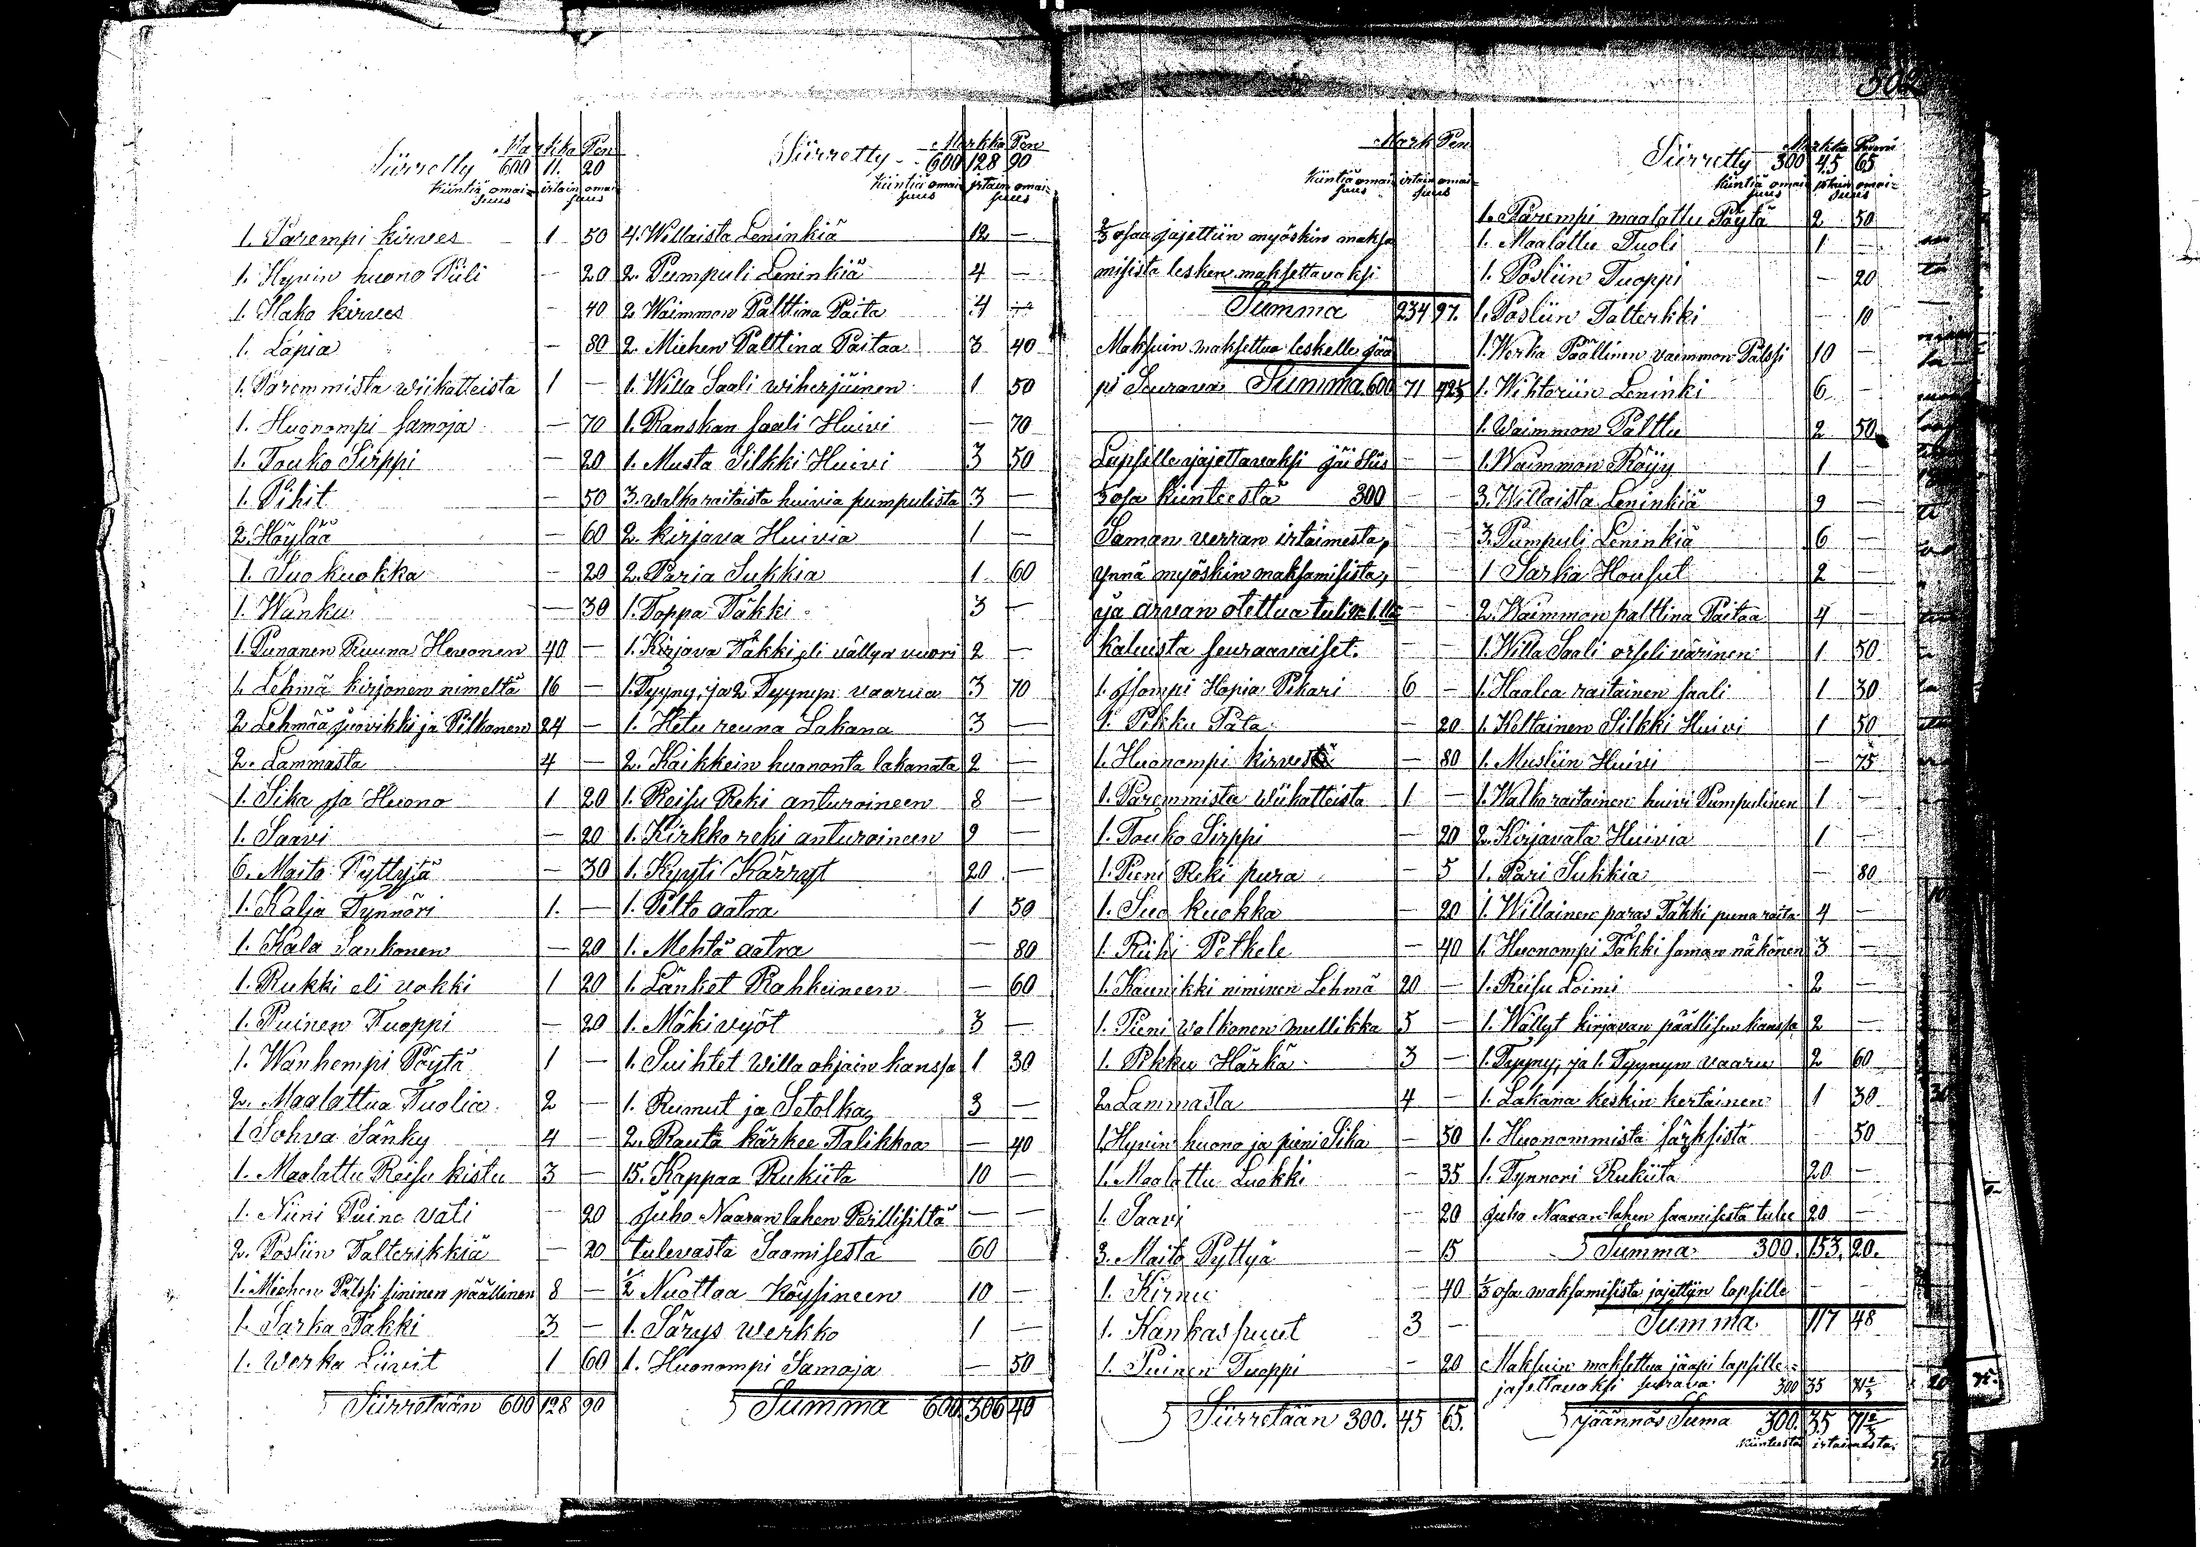 502
Markka Pen
Siirretty 600 11. 20
kiintiä omai= irtain omai
suus suus
1. Parempi kirves 1 50
1. Hyvin huono Piili — 20
1. Hako kirves — 40
1. Lapia — 80
1. Paremmista wiikatteista 1 —
1. Huonompi samoja — 70
1. Touko Sirppi — 20
1. Pihit — 50
2. Höylää — 60
1. Suo kuokka — 20
1. Wanku — 30
1. Punanen Ruuna Hevonen 40 —
1. Lehmä kirjonen nimeltä 16 —
2 Lehmää juovikki ja Pilkonen 24 —
2. Lammasta 4 —
1. Sika ja Huono 1 20
1. Saavi — 20
6. Maito Pyttyjä — 30
1. Kalja Tynnöri 1. —
1. Kala Sankonen — 20
1. Rukki eli vokki 1 20
1. Puinen Tuoppi — 20
1. Wanhempi Pöytä 1 —
2. Maalattua Tuolia 2 —
1 Sohva Sänky 4 —
1. Maalattu Reisu kistu 3 —
1. Niini Puine vati — 20
2. Posliin Talterikkiä — 20
1. Miehen Pälssi sininen päällinen 8 —
1. Sarka Takki 3 —
1. Werka Liivit 1 60
Siirretään 600 128 90
Markka Pen
Siirretty - - 600 128 90
kiintiä omai irtain omai=
suus suus
4. Willaista Leninkiä 12 —
2. Pumpuli Leninkiä 4 —
2 Waimmon Palttina Paita 4 —
2. Miehen Palttina Paitaa 3 40
1. Willa Saali wiherjäinen 1 50
1. Ranskan saali Huivi — 70
1. Musta Silkki Huivi 3 50
3. walko raitaista huivia pumpulista 3 —
2. kirjava Huivia 1 —
2. Paria Sukkia 1 60
1. Toppa Täkki 3 —
1. Kirjava Täkki eli vällyn vuori 2 —
1. Tyyny, ja 2 Tyynyn vaaria 3 70
1. Hetu reuna Lakana 3 —
2. Kaikkein huononta lakanata 2 —
1. Reisu Reki anturoineen 8 —
1. Kirkko reki anturoineen 9 —
1. Kyyti Kärryt 20 —
1. Pelto aatra 1 50
1. Mehtä aatra — 80
1. Länket Rahkeineen — 60
1. Mäkivyöt 3 —
1. Suihtet Willa ohjain kanssa 1 30
1. Rumut ja Setolkaz 3 —
2. Rauta kärkee Talikkoa — 40
15. Kappaa Rukiita 10 —
Juho Naaranlahen Perillisiltä — —
tulevasta Saamisesta 60
1/2 Nuottaa Köysineen 10 —
1. Särys werkko 1 —
1. Huonompi Samoja — 50
Summa 600 306 40
Mark Pen
kiintiä omai irtain omai=
suus suus
2/3 osaa jajettiin myöskin maksa
misista lesken maksettavaksi
Summa 234 97.
Maksuin maksettua leskelle jää
pi Seurava Summa 600 71 42⅔
Lapsille jajettavaksi jäi Siis
1/3 osa kiinteestä 300 — —
Saman verran irtaimesta,
ynnä myöskin maksamisista,
ja arvan otettua tuli
kaluista seuraavaiset.
1. Isompi Hopia Pikari 6 —
1. Pikku Pata — 20
1. Huonompi kirves — 80
1. Paremmista Wiikatteista 1 —
1. Touko Sirppi — 20
1. Pieni Reki pura — 5
1. Suo kuokka — 20
1. Riihi Petkele — 40
1. Kaunikki niminen Lehmä 20 —
1. Pieni walkonen mullikka 5 —
1. Pikku Härkä 3 —
2 Lammasta 4 —
1. Hyvin huono ja pieni Sika — 50
1. Maalattu Luokki — 35
1. Saavi — 20
3. Maito Pyttyä — 15
1. Kirnu 40
1. Kankas puut 3 —
1. Puinen Tuoppi — 20
Siirretään 300. 45 65.
Markka Penni
Siirretty 300 45 65
kiintiä omai irtain omai=
suus suus
1. Parempi maalattu Pöytä 2 50
1. Maalattu Tuoli 1 —
1. Posliin Tuoppi — 20
1. Posliin Talterkki — 10
1. Werka Päällinen vaimmon Pälssi 10 —
1. Wihtoriin Leninki 6 —
1. Waimmon Palttu 2 50
1. Waimmon Röijy 1 —
3. Willaista Leninkiä 9 —
3. Pumpuli Leninkiä 6 —
1 Sarka Housut 2 —
2. Waimmon palttina Paitaa 4 —
1. Willa Saali orseli värinen 1 50
1. Haalea raitainen saali 1 30
1. Keltainen Silkki Huivi 1 50
1. Musliin Huivi — 75
1. Walko raitainen huivi Pumpulinen 1 —
2. Kirjavata Huivia 1 —
1. Pari Sukkia — 80
1. Willainen paras Täkki puna raita 4 —
1. Huonompi Täkki saman näkönen 3 —
1. Reisu Loimi 2 —
1. Wällyt kirjavan päällisen kanssa 2 —
1. Tyyny, ja 1. Tyynyn vaaru 2 60
1. Lakana keskin kertainen 1 30
1. Huonommista särksistä 50
1. Tynnöri Rukiita 20 —
Juho Naaranlahen saamisesta tulee 20 —
Summa 300. 153, 20.
1/3 osa maksamisista jajettiin lapsille — —
Summa 117 48
Maksuin maksettua jääpi lapsille
jajettavaksi seurava 300 35 71⅔
Jäännös Suma 300. 35 71⅔
kiinteestä irtaimesta.